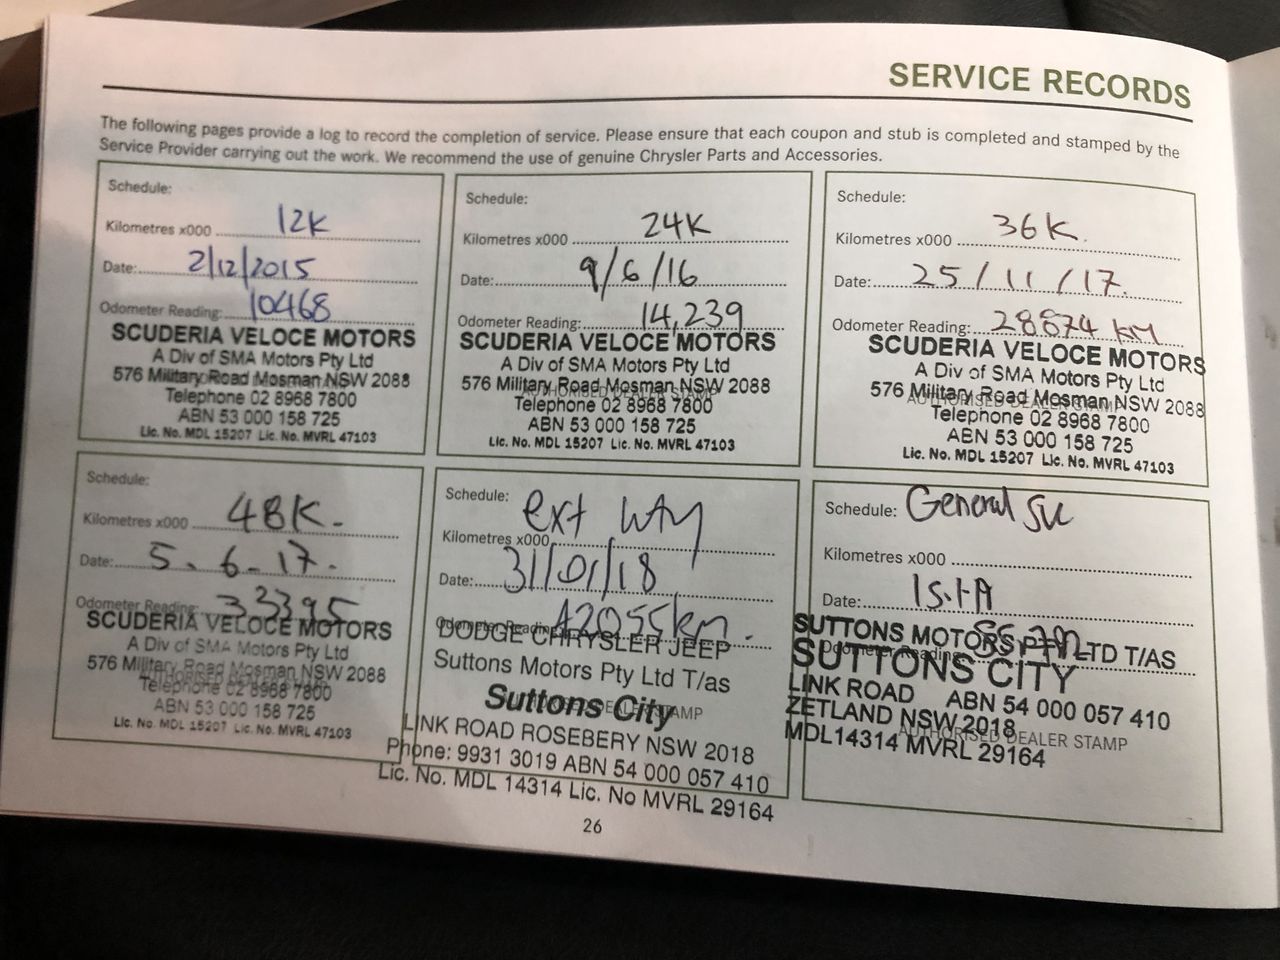 SERVICE RECORDS
The following pages provide a log to record the completion of service. Please ensure that each coupon and stub is completed and stamped by the
Service Provider carrying out the work. We recommend the use of genuine Chrysler Parts and Accessories.
Schedule:
Kilometres x000 12K
Date: 2/12/2015
Odometer Reading: 10468
SCUDERIA VELOCE MOTORS
A Div of SMA Motors Pty Ltd
576 Military Road Mosman NSW 2088
Telephone 02 8968 7800
ABN 53 000 158 725
Lic. No. MDL 15207 Lic. No. MVRL 47103
Schedule:
Kilometres x000 24K
Date: 9/6/16
Odometer Reading: 14,239
SCUDERIA VELOCE MOTORS
A Div of SMA Motors Pty Ltd
576 Military Road Mosman NSW 2088
AUTHORISED DEALER STAMP
Telephone 02 8968 7800
ABN 53 000 158 725
Lic. No. MDL 15207 Lic. No. MVRL 47103
Schedule:
Kilometres x000 36K.
Date: 25/11/17.
Odometer Reading: 28874 KM
SCUDERIA VELOCE MOTORS
A Div of SMA Motors Pty Ltd
576 Military Road Mosman NSW 2088
AUTHORISED DEALER STAMP
Telephone 02 8968 7800
ABN 53 000 158 725
Lic. No. MDL 15207 Lic. No. MVRL 47103
Schedule:
Kilometres x000 48K-
Date: 5.6-17.
Odometer Reading: 33395
SCUDERIA VELOCE MOTORS
A Div of SMA Motors Pty Ltd
576 Military Road Mosman NSW 2088
Telephone 02 8968 7800
ABN 53 000 158 725
Lic. No. MDL 15207 Lic. No. MVRL 47103
Schedule: ext wty
Kilometres x000
Date: 31/01/18
Odometer Reading: 42055km.
DODGE CHRYSLER JEEP
Suttons Motors Pty Ltd T/as
Suttons City
STAMP
LINK ROAD ROSEBERY NSW 2018
Phone: 9931 3019 ABN 54 000 057 410
Lic. No. MDL 14314 Lic. No MVRL 29164
Schedule: General
Kilometres x000
Date:
Odometer Reading:
SUTTONS MOTORS PTY LTD T/AS
SUTTONS CITY
LINK ROAD ABN 54 000 057 410
ZETLAND NSW 2018
AUTHORISED DEALER STAMP
MDL14314 MVRL 29164
26